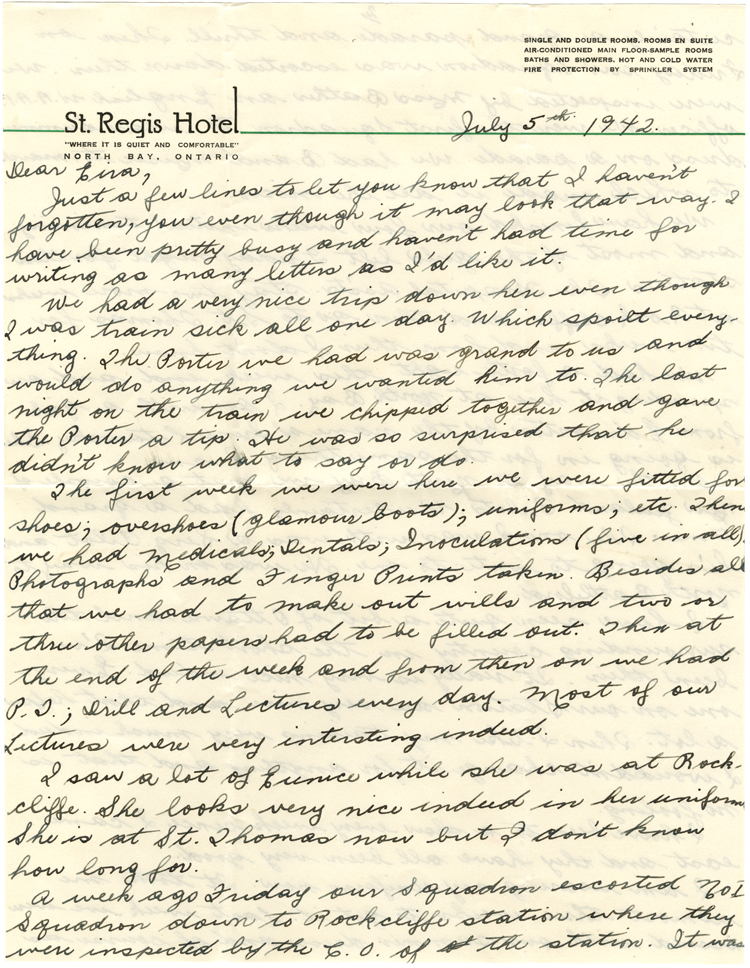 SINGLE AND DOUBLE ROOMS. ROOMS EN SUITE
AIR-CONDITIONED MAIN FLOOR-SAMPLE ROOMS
BATHS AND SHOWERS. HOT AND COLD WATER
FIRE PROTECTION BY SPRINKLER SYSTEM
St. Regis Hotel
"WHERE IT IS QUIET AND COMFORTABLE"
NORTH BAY, ONTARIO
July 5th 1942.
Dear Eira,
Just a few lines to let you know that I haven't
forgotten, you even though it may look that way. I
have been pretty busy and haven't had time for
writing as many letters as I'd like it.
We had a very nice trip down here even though
I was train sick all one day. Which spoilt every-
thing. The Porter we had was grand to us and
would do anything we wanted him to. The last
night on the train we chipped together and gave
the Porter a tip. He was so surprised that he
didn't know what to say or do.
The first week we were here we were fitted for
shoes; overshoes (glamour boots); uniforms; etc. Then
we had Medicals; Dentals; Inoculations (five in all);
Photographs and Finger Prints taken. Besides all
that we had to make out wills and two or
three other papers had to be filled out. Then at
the end of the week and from then on we had
P.T.; Drill and Lectures every day. Most of our
Lectures were very intersting indeed.
I saw a lot of Eunice while she was at Rock-
cliffe. She looks very nice indeed in her uniform
She is at St. Thomas now but I don't know
how long for.
A week ago Friday our Squadron escorted No I
Squadron down to Rockcliffe station where they
were inspected by the C.O. of the station. It was